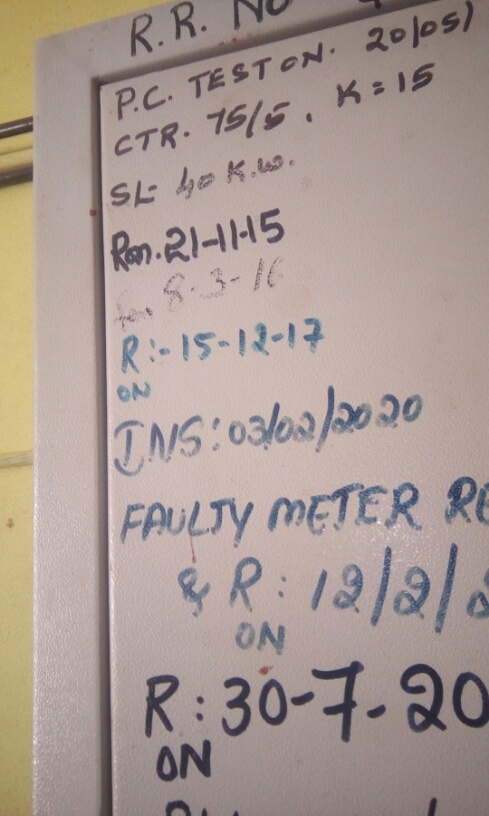 R.R. NO
P.C. TEST ON. 20/05/
CTR. 75/5. K=15
SL- 40 K.W.
Ron. 21-11-15
8-3-16
R:- 15-12-17
ON
INS: 03/02/2020
FAULTY METER RE
& R: 12/2/2
ON
R: 30-7-20
ON